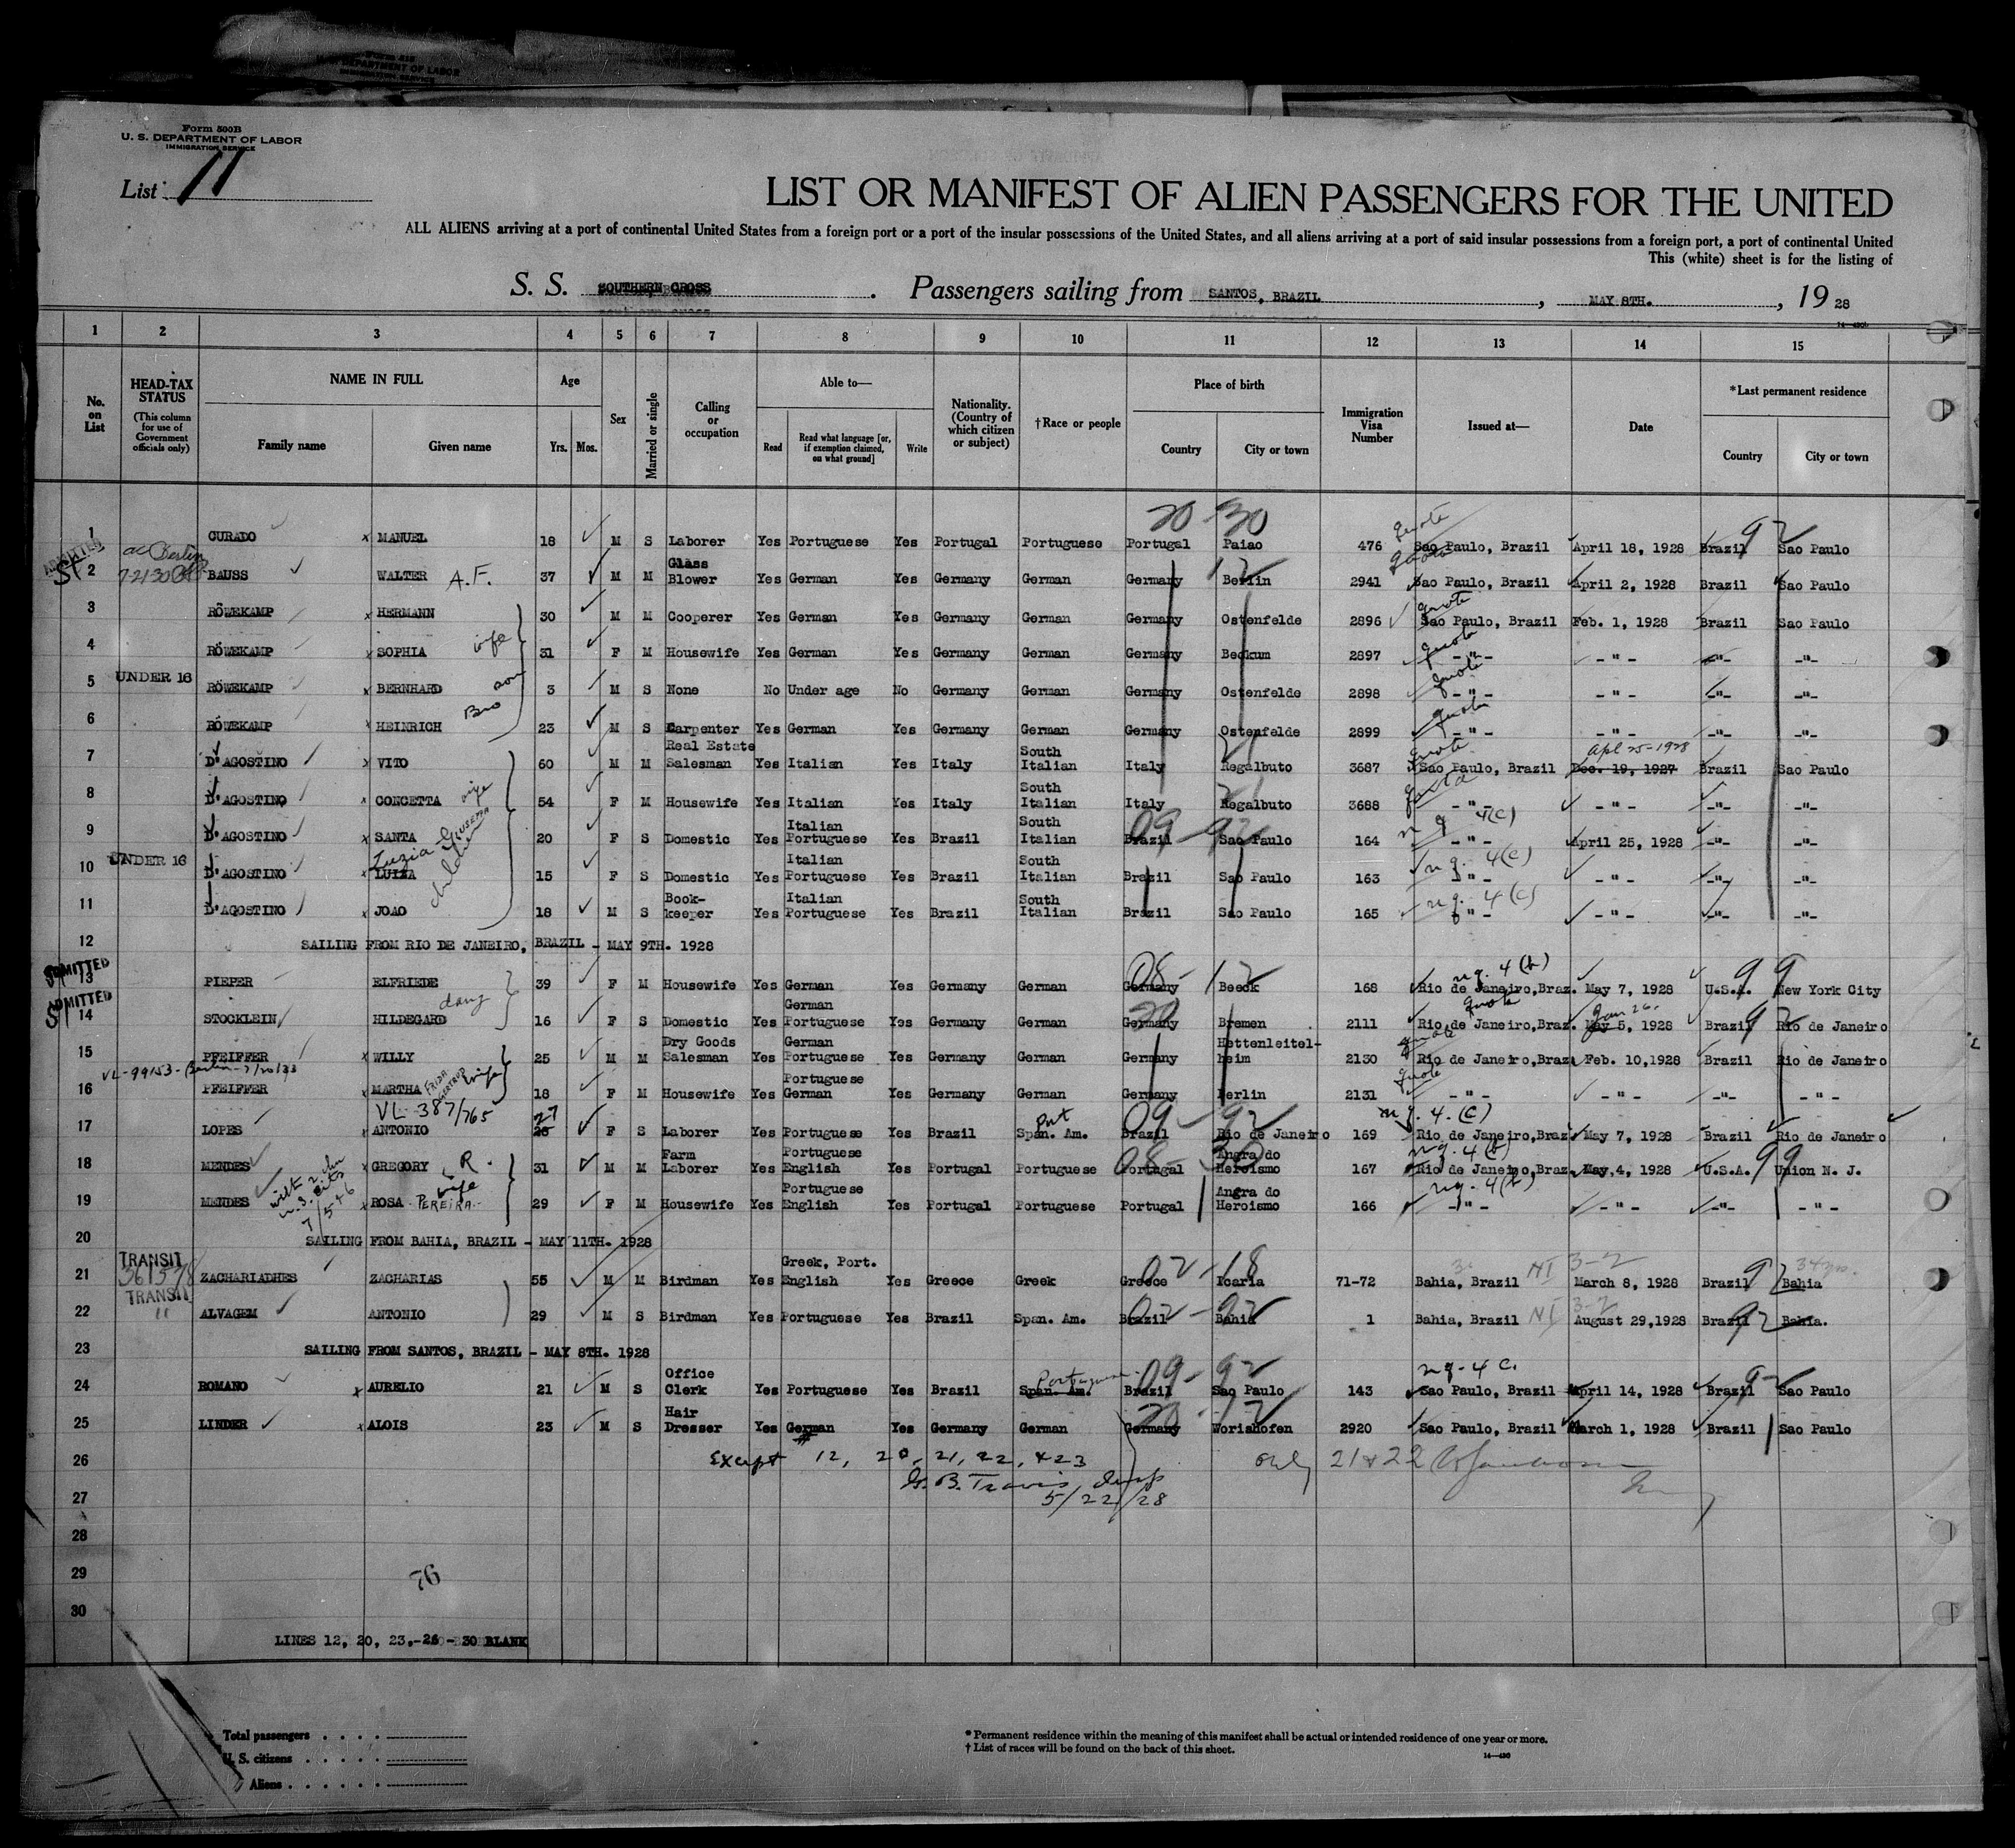 Form 500B
U. S. DEPARTMENT OF LABOR
IMMIGRATION SERVICE
List 11
LIST OR MANIFEST OF ALIEN PASSENGERS FOR THE UNITED
ALL ALIENS arriving at a port of continental United States from a foreign port or a port of the insular possessions of the United States, and all aliens arriving at a port of said insular possessions from a foreign port, a port of continental United
This (white) sheet is for the listing of
S. S. SOUTHERN CROSS. Passengers sailing from SANTOS, BRAZIL, MAY 8TH., 1928
1 2 3 4 5 6 7 8 9 10 11 12 13 14 15
No. on List
HEAD-TAX STATUS (This column for use of Government officials only)
NAME IN FULL Family name Given name
Age Yrs. Mos.
Sex
Married or single
Calling or occupation
Able to— Read Read what language [or, if exemption claimed, on what ground] Write
Nationality. (Country of which citizen or subject)
†Race or people
Place of birth Country City or town
Immigration Visa Number
Issued at—
Date
*Last permanent residence Country City or town
20-30 quota
1 CURADO x MANUEL 18 M S Laborer Yes Portuguese Yes Portugal Portuguese Portugal Paiao 476 Sao Paulo, Brazil April 18, 1928 Brazil 92 Sao Paulo
ADMITTED 7-21-30 quota
2 BAUSS WALTER A.F. 37 M M Glass Blower Yes German Yes Germany German Germany 12 Berlin 2941 Sao Paulo, Brazil April 2, 1928 Brazil Sao Paulo
3 RÖWEKAMP x HERMANN 30 M M Cooperer Yes German Yes Germany German Germany Ostenfelde 2896 quota Sao Paulo, Brazil Feb. 1, 1928 Brazil Sao Paulo
4 RÖWEKAMP x SOPHIA wife 31 F M Housewife Yes German Yes Germany German Germany Beckum 2897 quota -"- -"- -"- -"-
UNDER 16
5 RÖWEKAMP x BERNHARD son 3 M S None No Under age No Germany German Germany Ostenfelde 2898 quota -"- -"- -"- -"-
6 RÖWEKAMP x HEINRICH Bro 23 M S Carpenter Yes German Yes Germany German Germany Ostenfelde 2899 quota -"- -"- -"- -"-
7 D'AGOSTINO x VITO 60 M M Real Estate Salesman Yes Italian Yes Italy South Italian Italy 21 Regalbuto 3687 quota Sao Paulo, Brazil Dec. 19, 1927 Apl 25-1928 Brazil Sao Paulo
8 D'AGOSTINO x CONCETTA wife 54 F M Housewife Yes Italian Yes Italy South Italian Italy 21 Regalbuto 3688 quota -"- -"- -"- -"-
9 D'AGOSTINO x SANTA GIUSEPPA 20 F S Domestic Yes Italian Portuguese Yes Brazil South Italian Brazil 09-92 Sao Paulo 164 n q 4(c) -"- April 25, 1928 -"- -"-
UNDER 16
10 D'AGOSTINO x LUIZA Luzia children 15 F S Domestic Yes Italian Portuguese Yes Brazil South Italian Brazil Sao Paulo 163 n q. 4(c) -"- -"- -"- -"-
11 D'AGOSTINO x JOAO 18 M S Book-keeper Yes Italian Portuguese Yes Brazil South Italian Brazil Sao Paulo 165 n q. 4(c) -"- -"- -"- -"-
12 SAILING FROM RIO DE JANEIRO, BRAZIL - MAY 9TH. 1928
ADMITTED
13 PIEPER ELFRIEDE 39 F M Housewife Yes German Yes Germany German Germany 08-12 Beeck 168 n q. 4(b) Rio de Janeiro,Braz. May 7, 1928 U.S.A. 99 New York City
ADMITTED
14 STOCKLEIN HILDEGARD daug 16 F S Domestic Yes German Portuguese Yes Germany German Germany 20 Bremen 2111 quota Rio de Janeiro,Braz. May 5, 1928 Jan 26. Brazil 92 Rio de Janeiro
15 PFEIFFER x WILLY 25 M M Dry Goods Salesman Yes German Portuguese Yes Germany German Germany Hettenleitel-heim 2130 quota Rio de Janeiro,Braz. Feb. 10,1928 Brazil Rio de Janeiro
VL-99153-(Berlin-7/20/33
16 PFEIFFER x MARTHA FRIDA GERTRUD wife 18 F M Housewife Yes Portuguese German Yes Germany German Germany Berlin 2131 quota -"- -"- -"- -"-
VL 387/765
17 LOPES x ANTONIO 26 27 F S Laborer Yes Portuguese Yes Brazil Span. Am. Port Brazil 09-92 Rio de Janeiro 169 n q. 4.(C) Rio de Janeiro,Braz. May 7, 1928 Brazil Rio de Janeiro
18 MENDES x GREGORY R. 31 M M Farm Laborer Yes Portuguese English Yes Portugal Portuguese Portugal 08-30 Angra do Heroismo 167 n q. 4(b) Rio de Janeiro,Braz. May, 4, 1928 U.S.A. 99 Union N. J.
19 MENDES x ROSA PEREIRA wife 29 F M Housewife Yes Portuguese English Yes Portugal Portuguese Portugal Angra do Heroismo 166 n q. 4(b) -"- -"- -"- -"-
20 SAILING FROM BAHIA, BRAZIL - MAY 11TH. 1928
TRANSIT
21 ZACHARIADHES ZACHARIAS 55 M M Birdman Yes Greek, Port. English Yes Greece Greek Greece 02-18 Icaria 71-72 Bahia, Brazil NI 3-2 March 8, 1928 Brazil 92 Bahia
TRANSIT
22 " ALVAGEM ANTONIO 29 M S Birdman Yes Portuguese Yes Brazil Span. Am. Brazil 02-92 Bahia 1 Bahia, Brazil NI 3-2 August 29,1928 Brazil 92 Bahia.
23 SAILING FROM SANTOS, BRAZIL - MAY 8TH. 1928
24 ROMANO x AURELIO 21 M S Office Clerk Yes Portuguese Yes Brazil Span. Am. Portuguese Brazil 09-92 Sao Paulo 143 n q-4 c. Sao Paulo, Brazil April 14, 1928 Brazil Sao Paulo
25 LINDER x ALOIS 23 M S Hair Dresser Yes German Yes Germany German Germany 20-12 Worishofen 2920 Sao Paulo, Brazil March 1, 1928 Brazil Sao Paulo
26 Except 12, 20, 21, 22, +23 only 21+22
27 B. Travis Insp 5/22/28
28
29 76
30
LINES 12, 20, 23,-26 - 30 BLANK
Total passengers
U. S. citizens
Aliens
* Permanent residence within the meaning of this manifest shall be actual or intended residence of one year or more.
† List of races will be found on the back of this sheet.
14—430